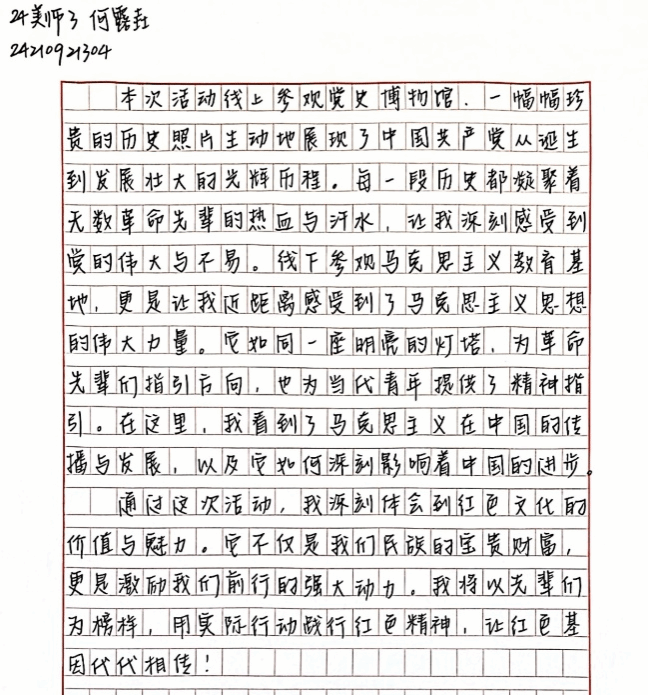 24美师3 何露垚
24210921304
本次活动线上参观党史博物馆，一幅幅珍
贵的历史照片生动地展现了中国共产党从诞生
到发展壮大的光辉历程。每一段历史都凝聚着
无数革命先辈的热血与汗水，让我深刻感受到
党的伟大与不易。线下参观马克思主义教育基
地，更是让我近距离感受到了马克思主义思想
的伟大力量。它如同一座明亮的灯塔，为革命
先辈们指引方向，也为当代青年提供了精神指
引。在这里，我看到了马克思主义在中国的传
播与发展，以及它如何深刻影响着中国的进步。
通过这次活动，我深刻体会到红色文化的
价值与魅力。它不仅是我们民族的宝贵财富，
更是激励我们前行的强大动力。我将以先辈们
为榜样，用实际行动践行红色精神，让红色基
因代代相传！